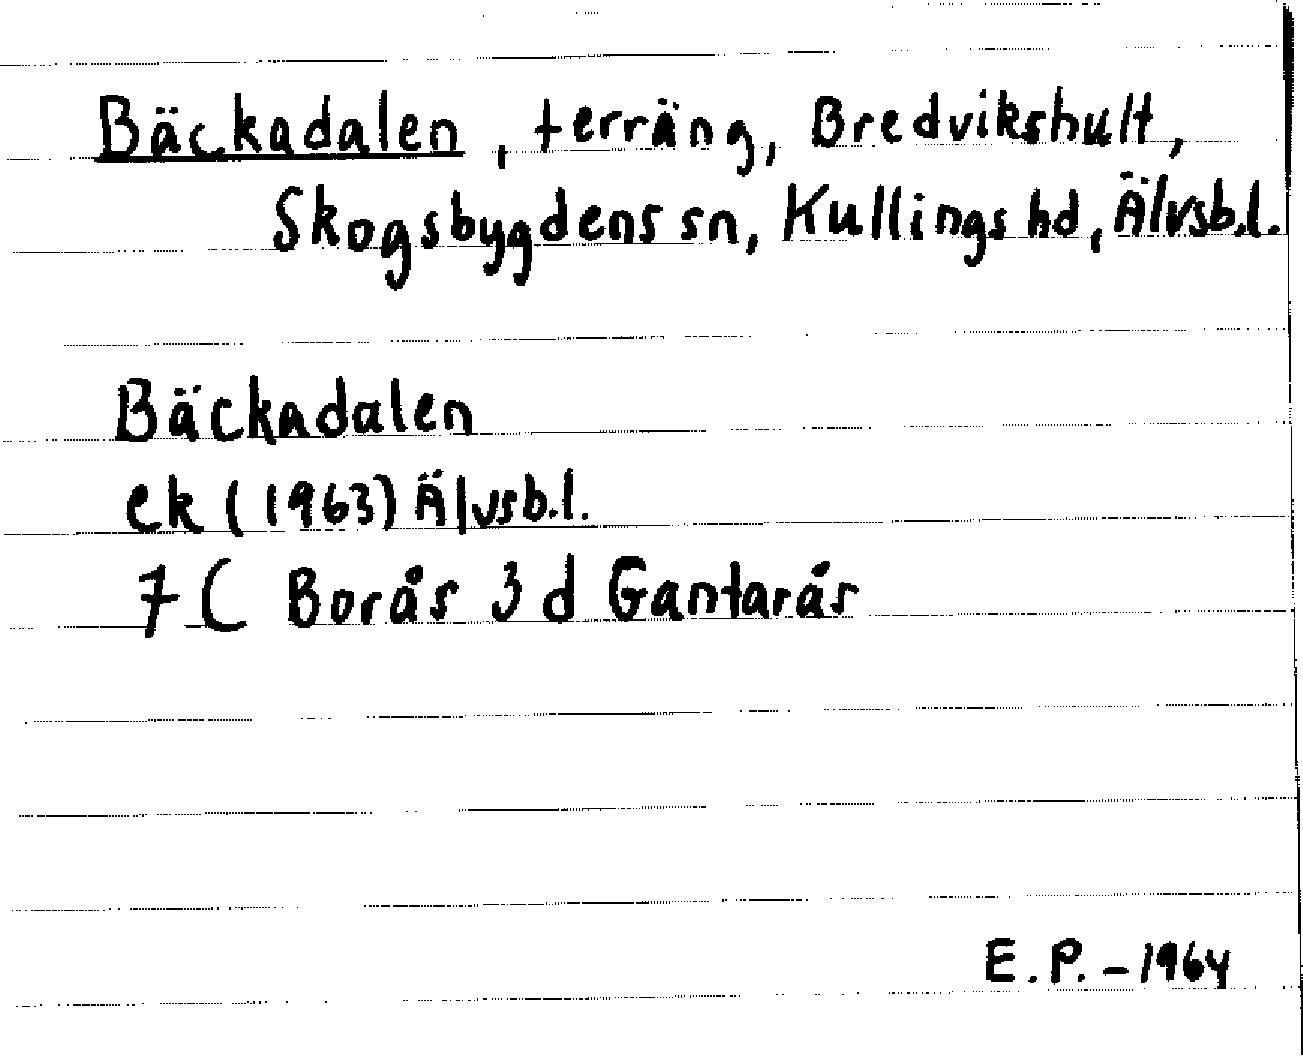 Bäckadalen, terräng, Bredvikshult,
Skogsbygdens sn, Kullings hd, Älvsb.l.
Bäckadalen
ek (1963) Älvsb.l.
7 C Borås 3 d Gantarås
E.P. - 1964